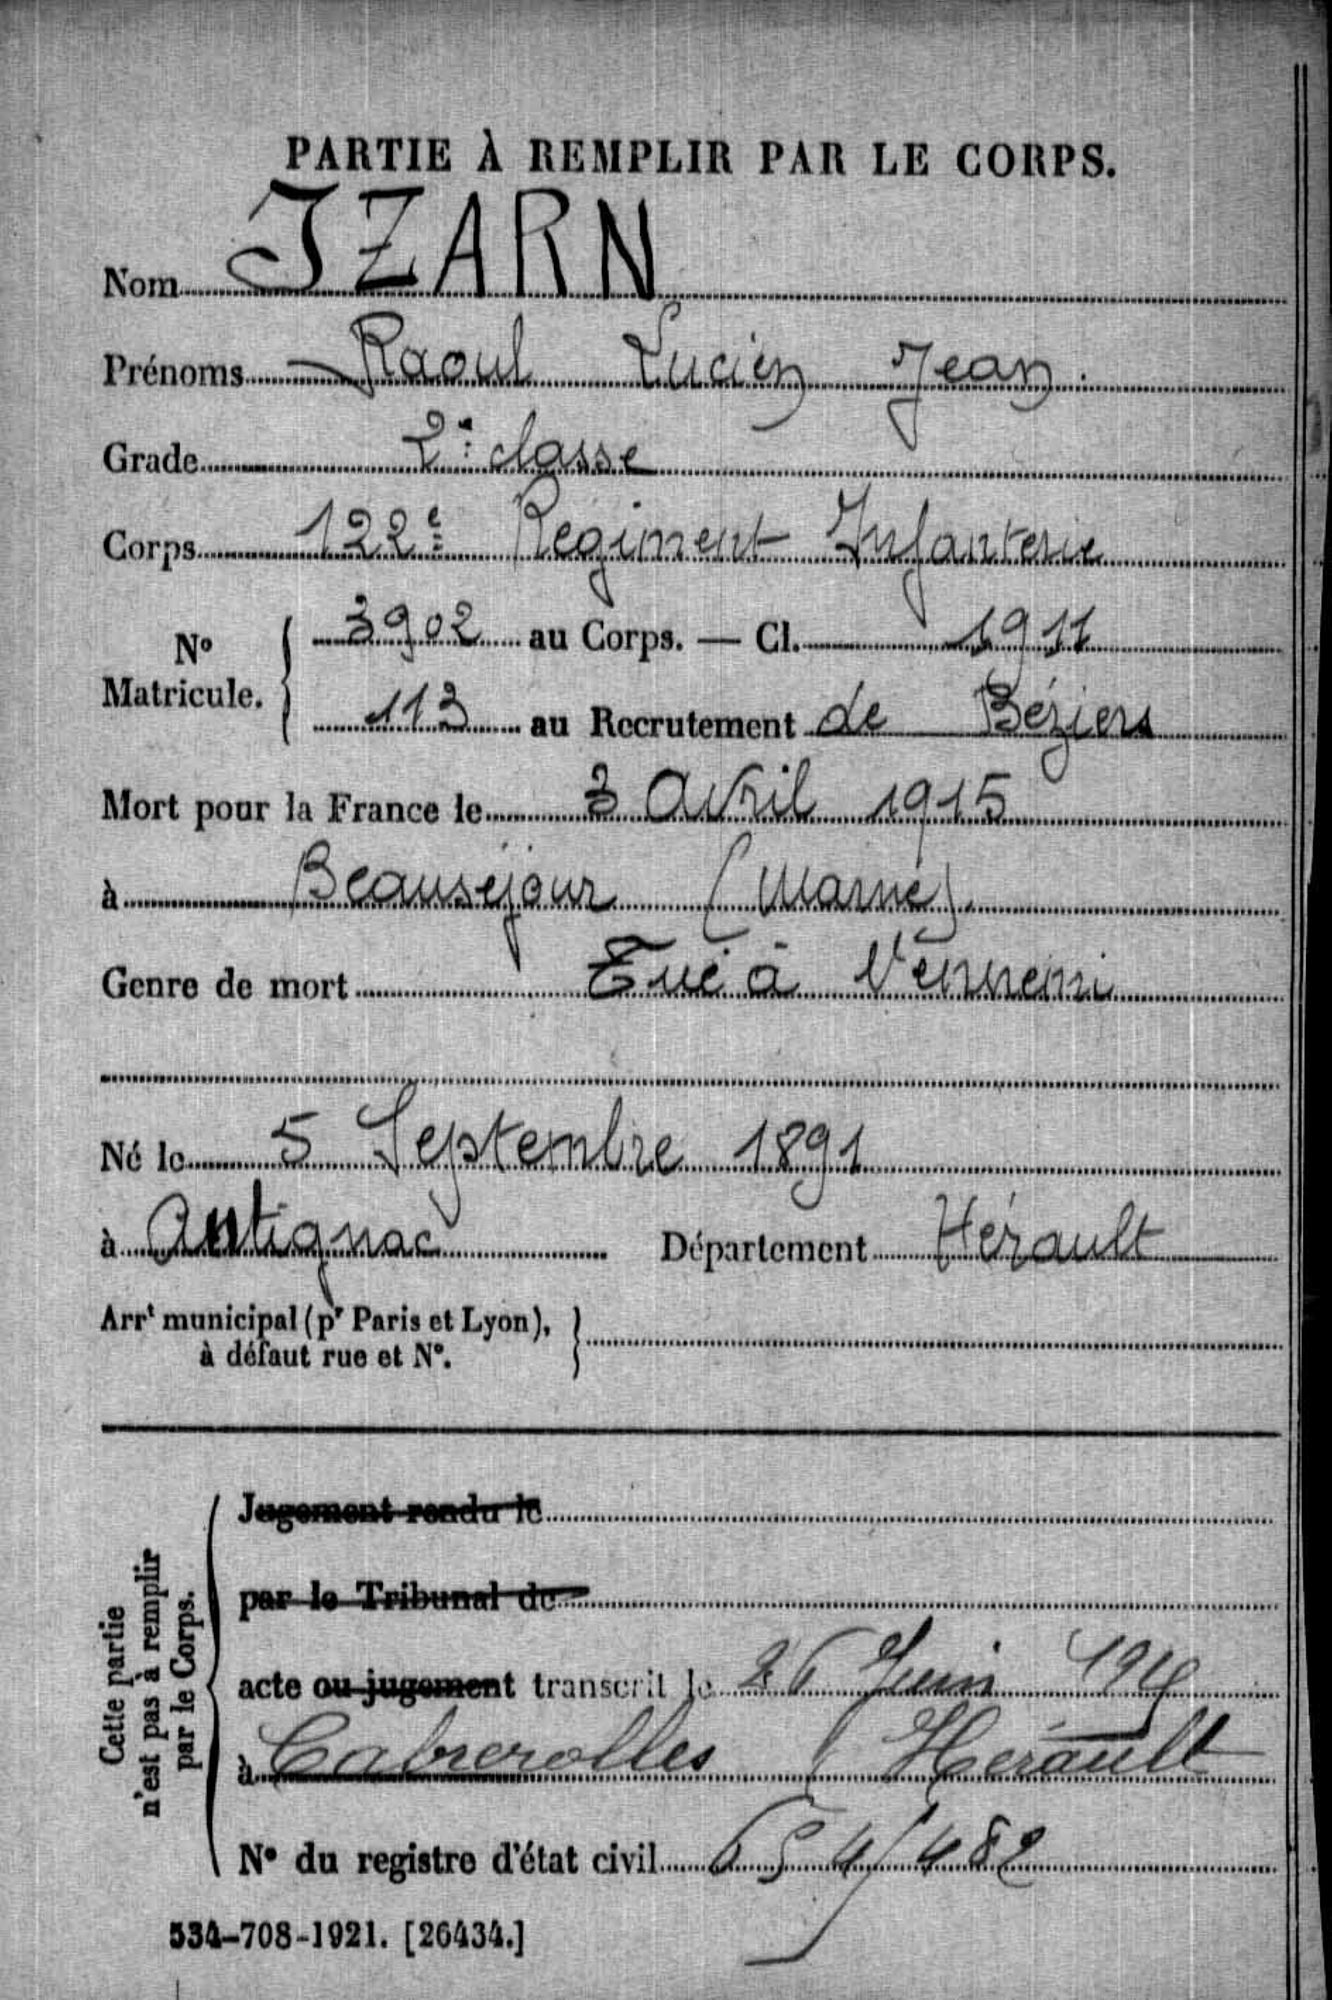 PARTIE À REMPLIR PAR LE CORPS.
Nom IZARN
Prénoms Raoul Lucien Jean.
Grade 2e classe
Corps 122e Régiment Infanterie
No Matricule. { 3902 au Corps. — Cl. 1911
113 au Recrutement de Béziers
Mort pour la France le 3 Avril 1915
à Beauséjour (Marne).
Genre de mort Tué à l'ennemi
Né le 5 Septembre 1891
à Autignac Département Hérault
Arrt municipal (pr Paris et Lyon), }
à défaut rue et No.
Cette partie
n'est pas à remplir
par le Corps.
Jugement rendu le
par le Tribunal de
acte ou jugement transcrit le 26 Juin
à Cabrerolles (Hérault
No du registre d'état civil
534-708-1921. [26434.]